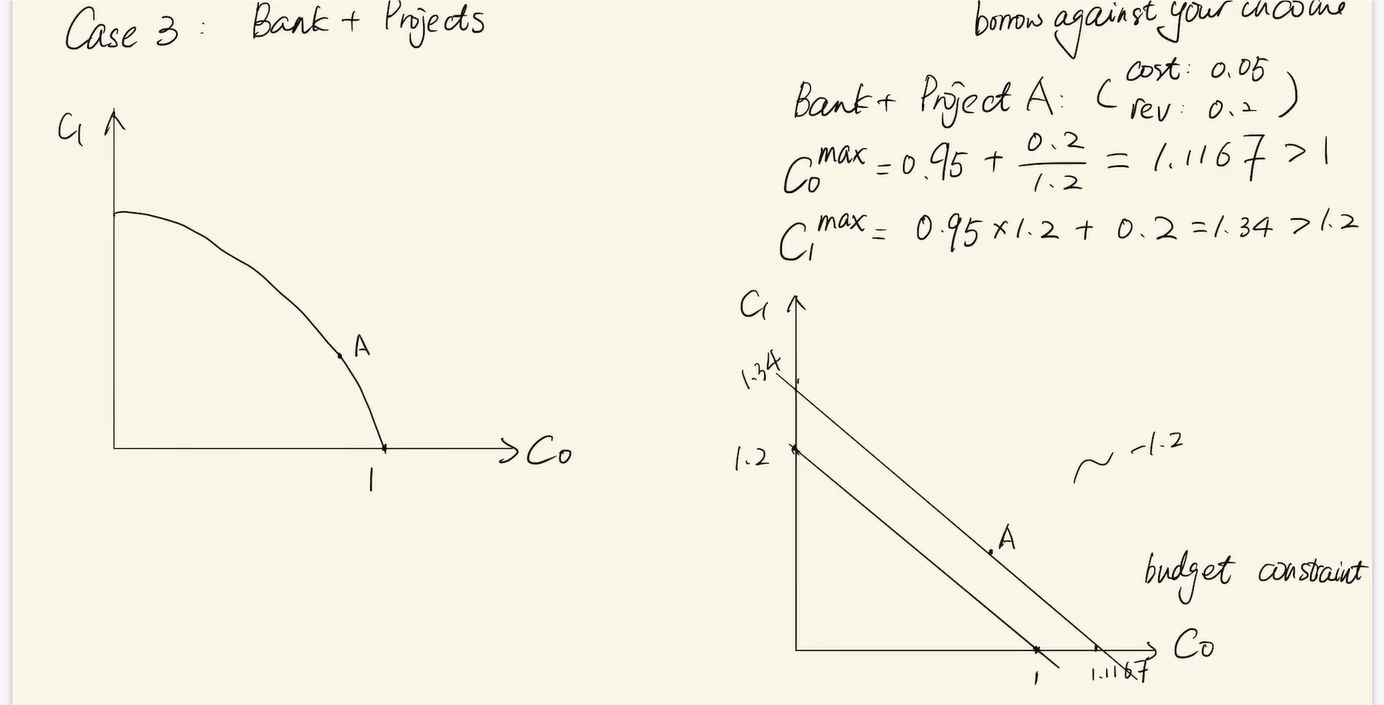 Case 3 : Bank + Projects
C₁
A
1
C₀
borrow against your income
Bank + Project A: ( cost: 0.05
rev: 0.2 )
C₀^max = 0.95 + 0.2/1.2 = 1.1167 > 1
C₁^max = 0.95 × 1.2 + 0.2 = 1.34 > 1.2
C₁
1.34
1.2
~ -1.2
A
budget constraint
C₀
1
1.1167